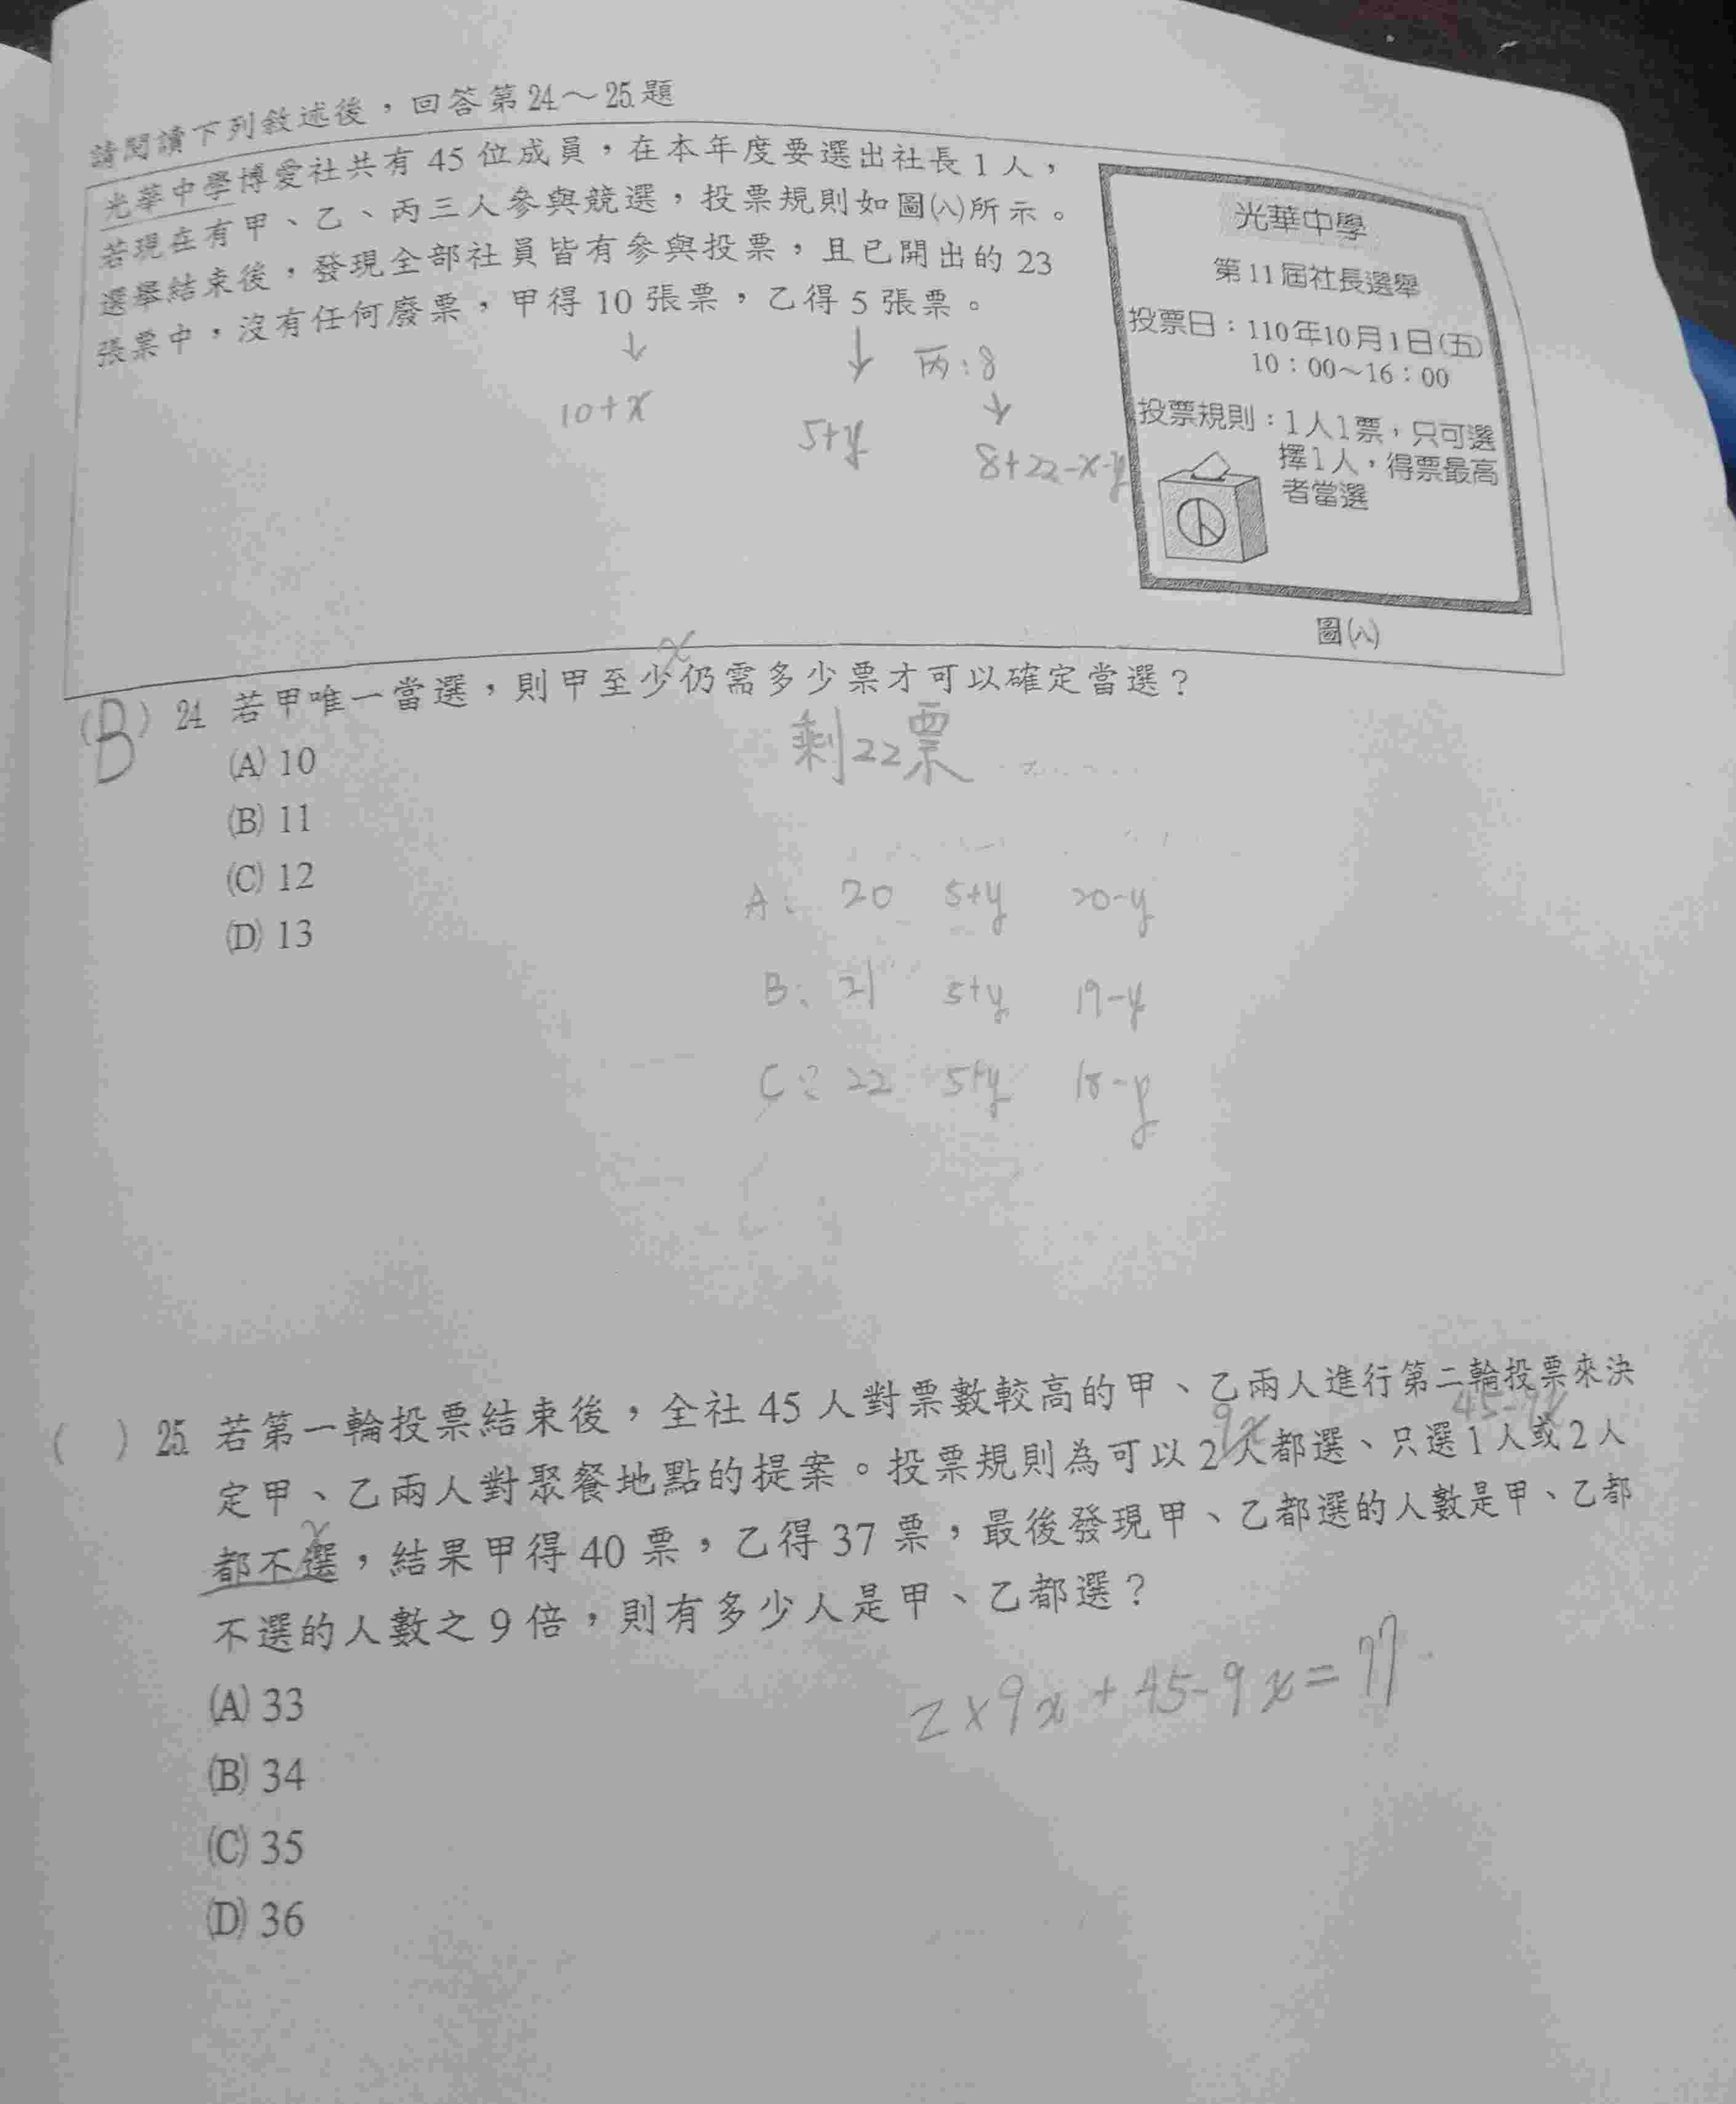 請閱讀下列敘述後，回答第24～25題
光華中學博愛社共有 45 位成員，在本年度要選出社長 1 人，
若現在有甲、乙、丙三人參與競選，投票規則如圖(八)所示。
選舉結束後，發現全部社員皆有參與投票，且已開出的 23
張票中，沒有任何廢票，甲得 10 張票，乙得 5 張票。
↓ ↓ 丙:8
10+x 5+y ↓
8+22-x-y
光華中學
第11屆社長選舉
投票日：110年10月1日(五)
10：00～16：00
投票規則：1人1票，只可選
擇1人，得票最高
者當選
圖(八)
x
(B) 24 若甲唯一當選，則甲至少仍需多少票才可以確定當選？
剩22票
(A) 10
(B) 11
(C) 12
(D) 13
A: 20 5+y 20-y
B: 21 5+y 19-y
C: 22 5+y 18-y
( ) 25 若第一輪投票結束後，全社 45 人對票數較高的甲、乙兩人進行第二輪投票來決
9x 45-9x
定甲、乙兩人對聚餐地點的提案。投票規則為可以 2 人都選、只選 1 人或 2 人
x
都不選，結果甲得 40 票，乙得 37 票，最後發現甲、乙都選的人數是甲、乙都
不選的人數之 9 倍，則有多少人是甲、乙都選？
2×9x+45-9x=77
(A) 33
(B) 34
(C) 35
(D) 36